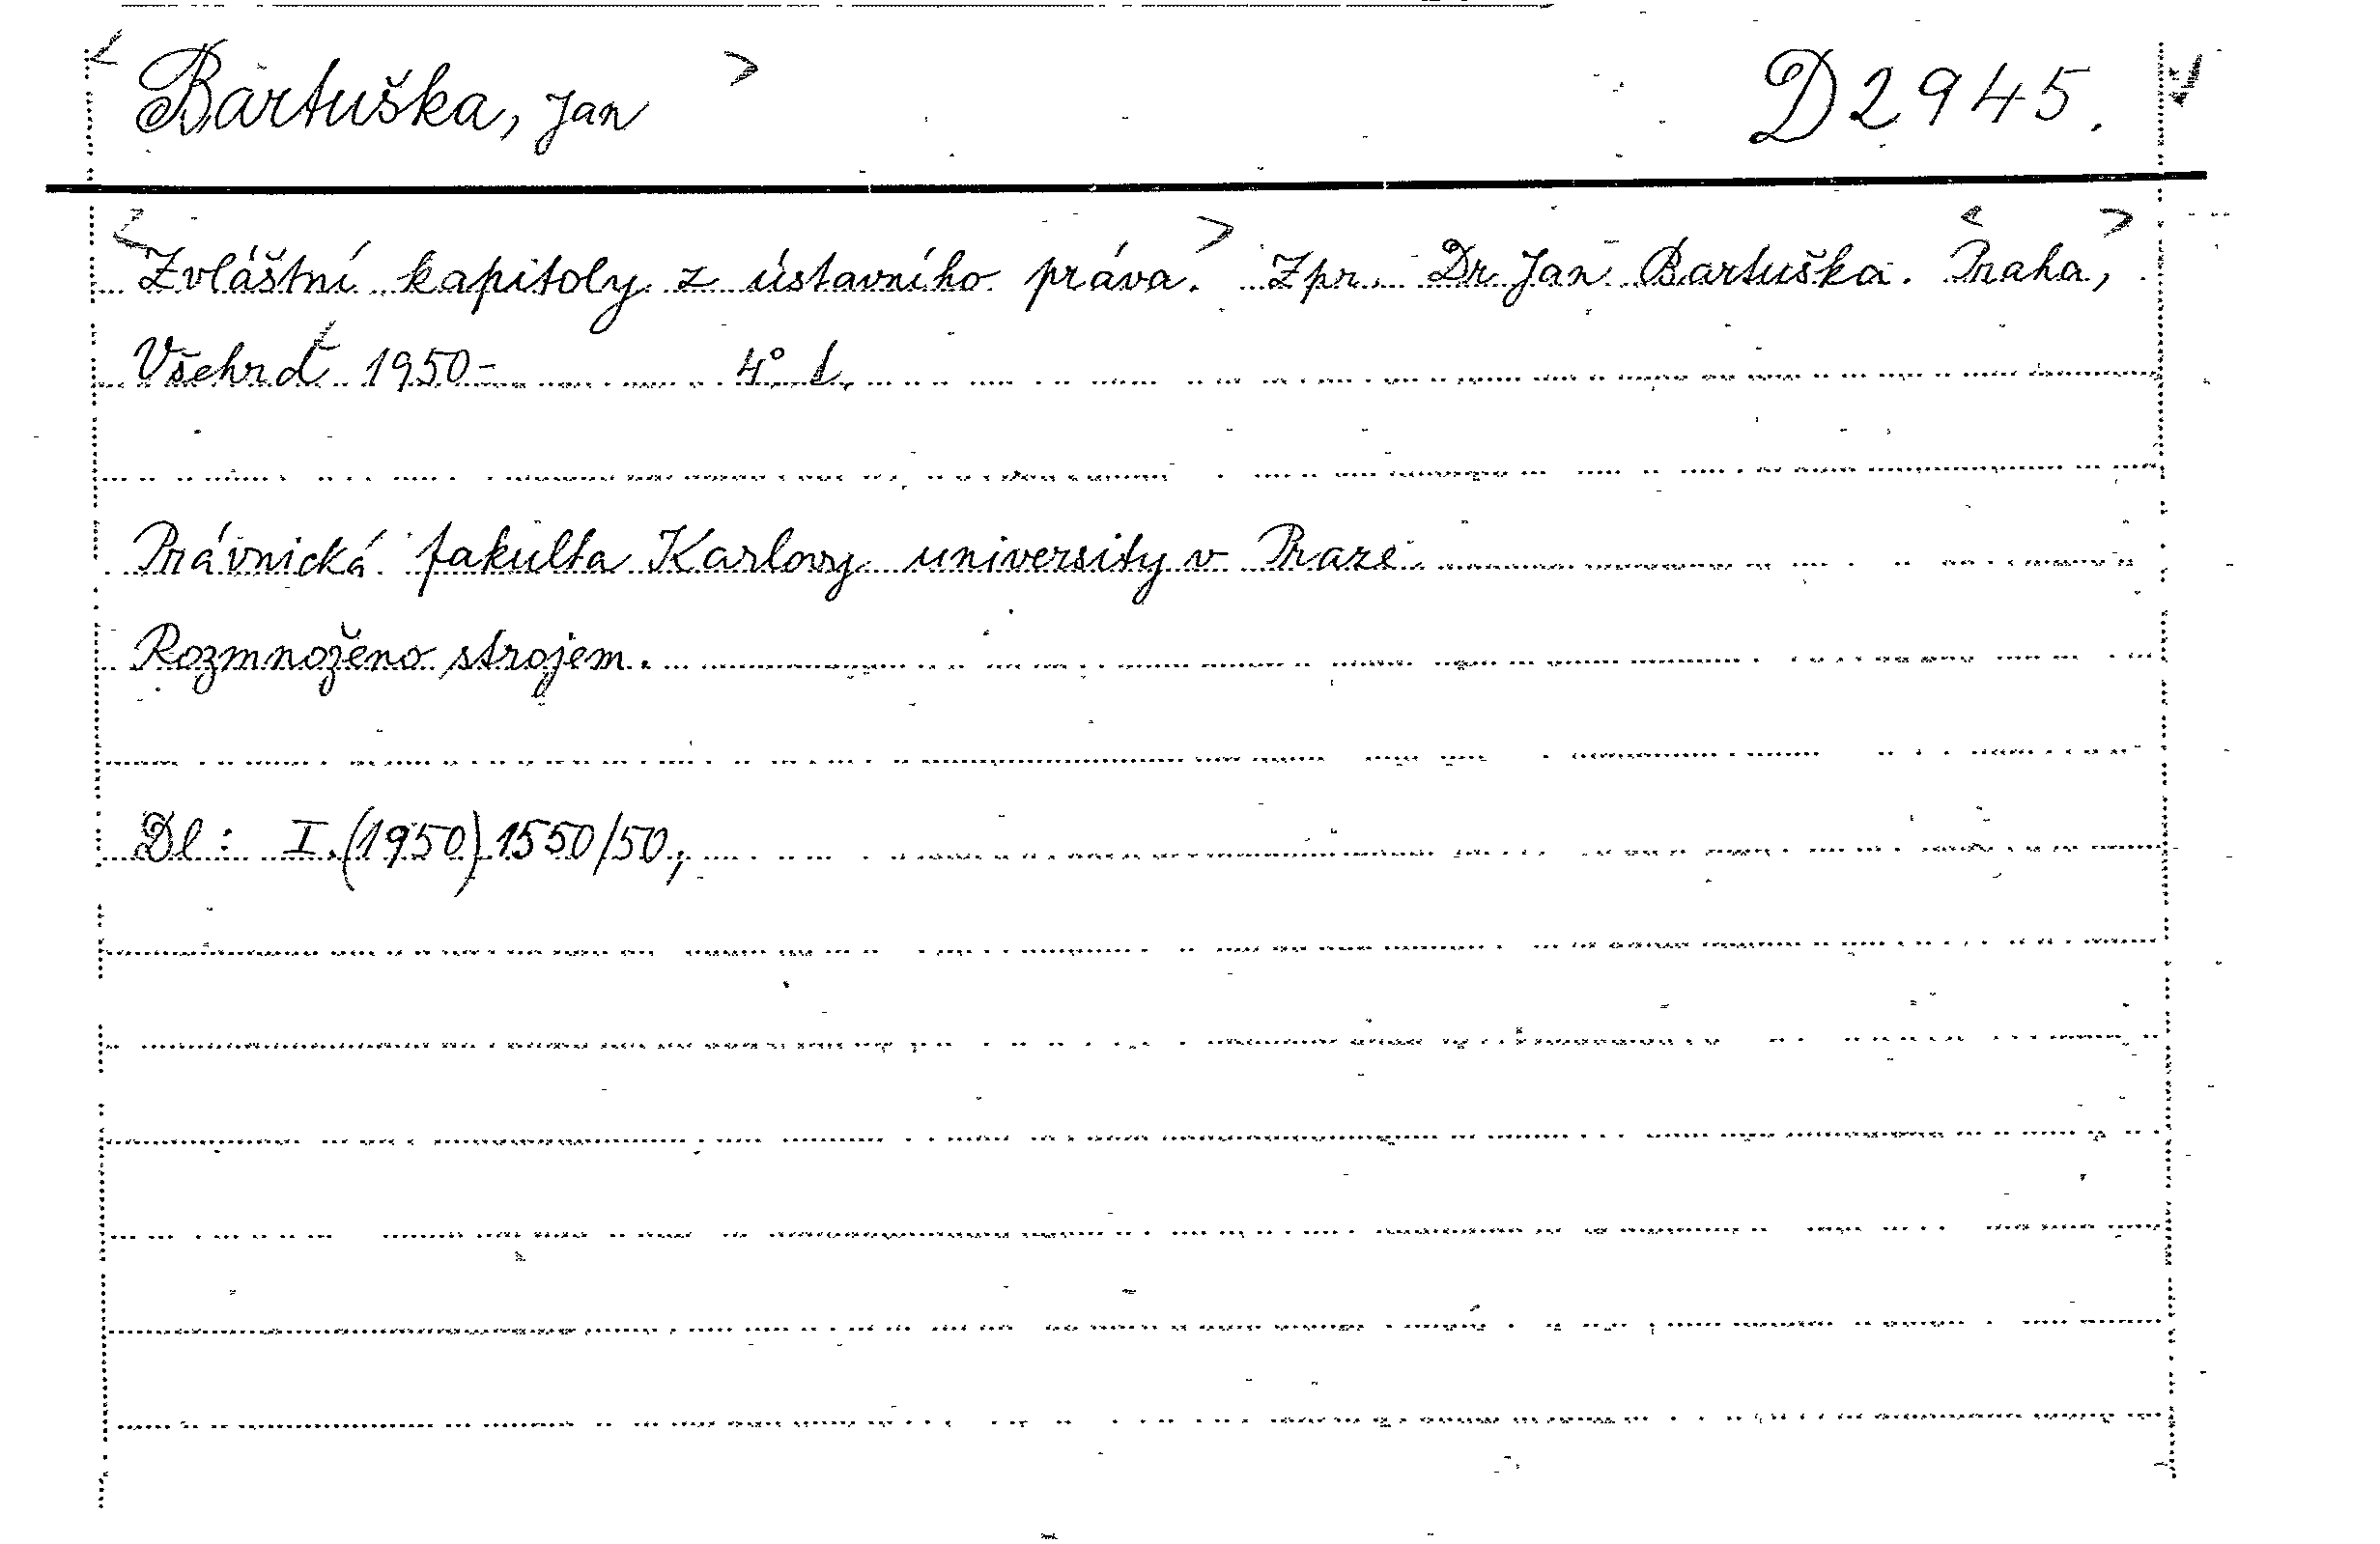 Bartuška, Jan D 2945.
Zvláštní kapitoly z ústavního práva. Zpr. Dr Jan Bartuška. Praha,
Všehrd 1950- 4°. l.
Právnická fakulta Karlovy university v Praze.
Rozmnoženo strojem.
Dl: I.(1950) 1550/50,